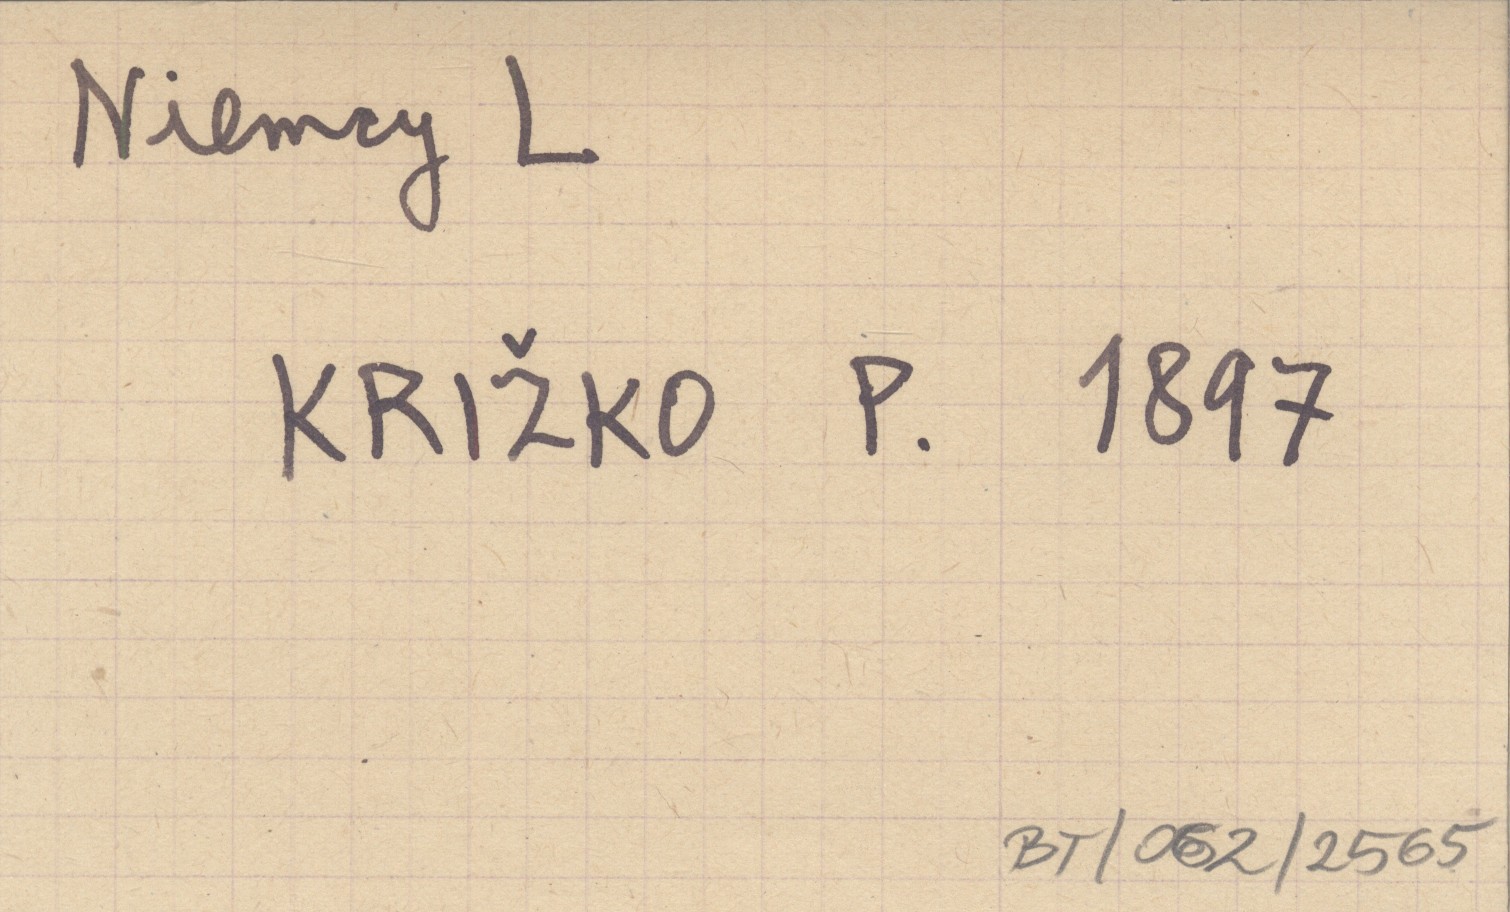 Niemcy L
KRIŽKO P. 1897
BT/062/2565